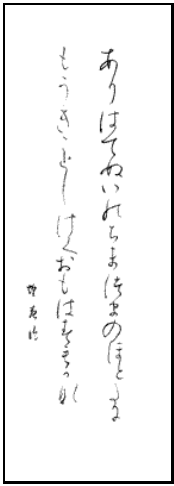 ありはてぬいのちまつまのほと
もうきことしけくおもはすもかな